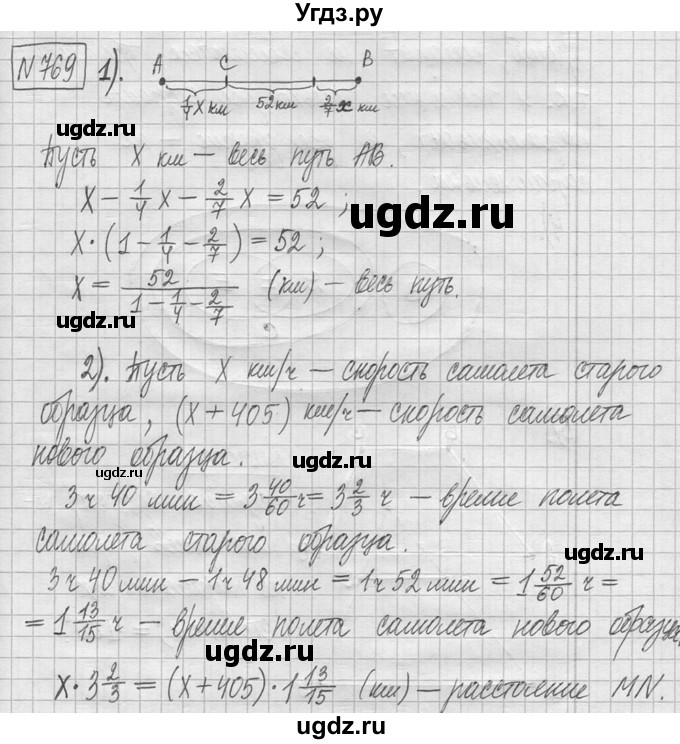 Угдз.ру
N769 1). A C B
1/4 x км 52 км 2/7 x км
Пусть X км — весь путь AB.
X - 1/4 X - 2/7 X = 52 ;
X · (1 - 1/4 - 2/7) = 52 ;
X = 52 / (1 - 1/4 - 2/7) (км) — весь путь.
2). Пусть X км/ч — скорость самолета старого
образца, (X + 405) км/ч — скорость самолета
нового образца.
3 ч 40 мин = 3 40/60 ч = 3 2/3 ч — время полета
самолета старого образца.
3 ч 40 мин - 1 ч 48 мин = 1 ч 52 мин = 1 52/60 ч =
= 1 13/15 ч — время полета самолета нового образца.
X · 3 2/3 = (X + 405) · 1 13/15 (км) — расстояние MN.
ugdz.ru
ugdz.ru
ugdz.ru
ugdz.ru
ugdz.ru
ugdz.ru
ugdz.ru
ugdz.ru
ugdz.ru
ugdz.ru
ugdz.ru